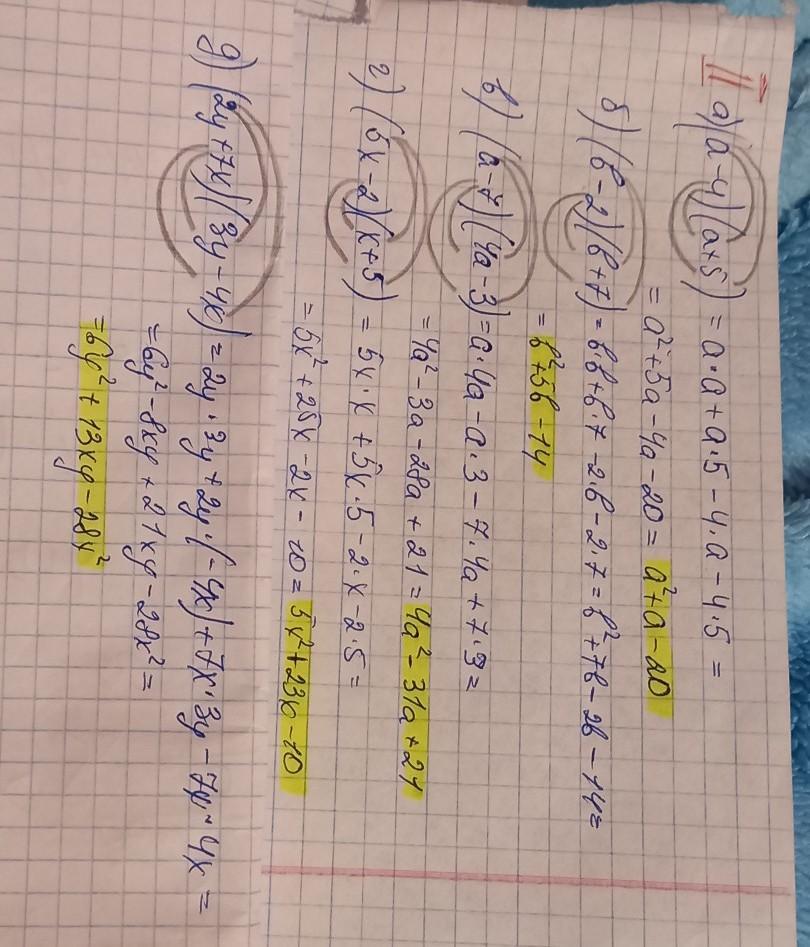 II
а) (a-4)(a+5) = a·a + a·5 - 4·a - 4·5 =
= a² + 5a - 4a - 20 = a² + a - 20
б) (b-2)(b+7) = b·b + b·7 - 2·b - 2·7 = b² + 7b - 2b - 14 =
= b² + 5b - 14
в) (a-7)(4a-3) = a·4a - a·3 - 7·4a + 7·3 =
= 4a² - 3a - 28a + 21 = 4a² - 31a + 21
г) (5x-2)(x+5) = 5x·x + 5x·5 - 2·x - 2·5 =
= 5x² + 25x - 2x - 10 = 5x² + 23x - 10
д) (2y+7x)(3y-4x) = 2y·3y + 2y·(-4x) + 7x·3y - 7x·4x =
= 6y² - 8xy + 21xy - 28x² =
= 6y² + 13xy - 28x²